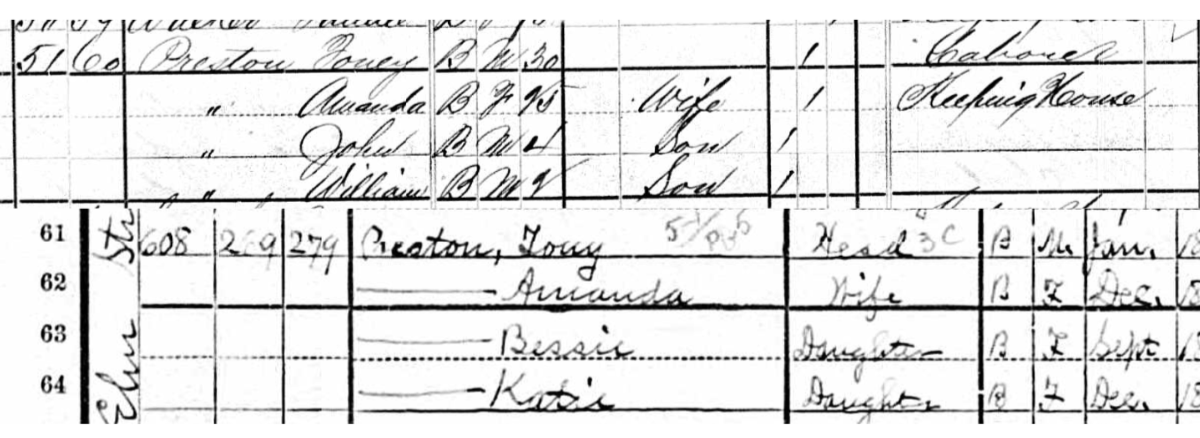 51 60 Preston Toney B M 30 1 Laborer
" Amanda B F 25 Wife 1 Keeping House
" John B M 4 Son 1
" William B M 2 Son 1
Elm Str
61 608 269 279 Preston, Tony Head B M Jan. 18
62 — Amanda Wife B F Dec. 18
63 — Bessie Daughter B F Sept 18
64 — Katie Daughter B F Dec. 18